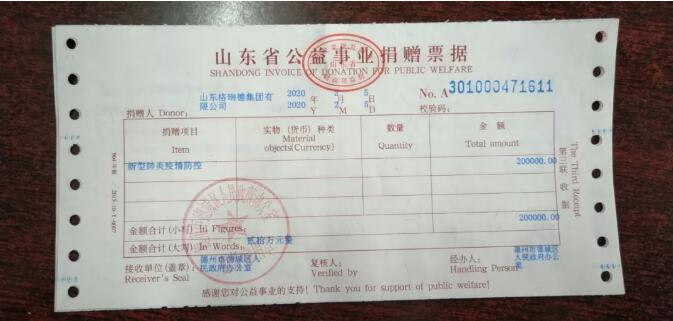 山东省公益事业捐赠票据
SHANDONG INVOICE OF DONATION FOR PUBLIC WELFARE
山东格瑞德集团有限公司
捐赠人 Donor:
2020 年 2 月 5 日
2020 Y 2 M 5 D
No. A 301000471611
校验码:
捐赠项目 实物 (货币) 种类 数量 金额
Item Material objects(Currency) Quantity Total amount
新型肺炎疫情防控 200000.00
金额合计(小写) In Figures: 200000.00
金额合计(大写) In Words: 贰拾万元整
接收单位(盖章) 德州市德城区人民政府办公室 复核人: 经办人: 德州市德城区人民政府办公室
Receiver's Seal Verified by Handling Person
感谢您对公益事业的支持! Thank you for support of public welfare!
第三联 收据
The Third Receipt